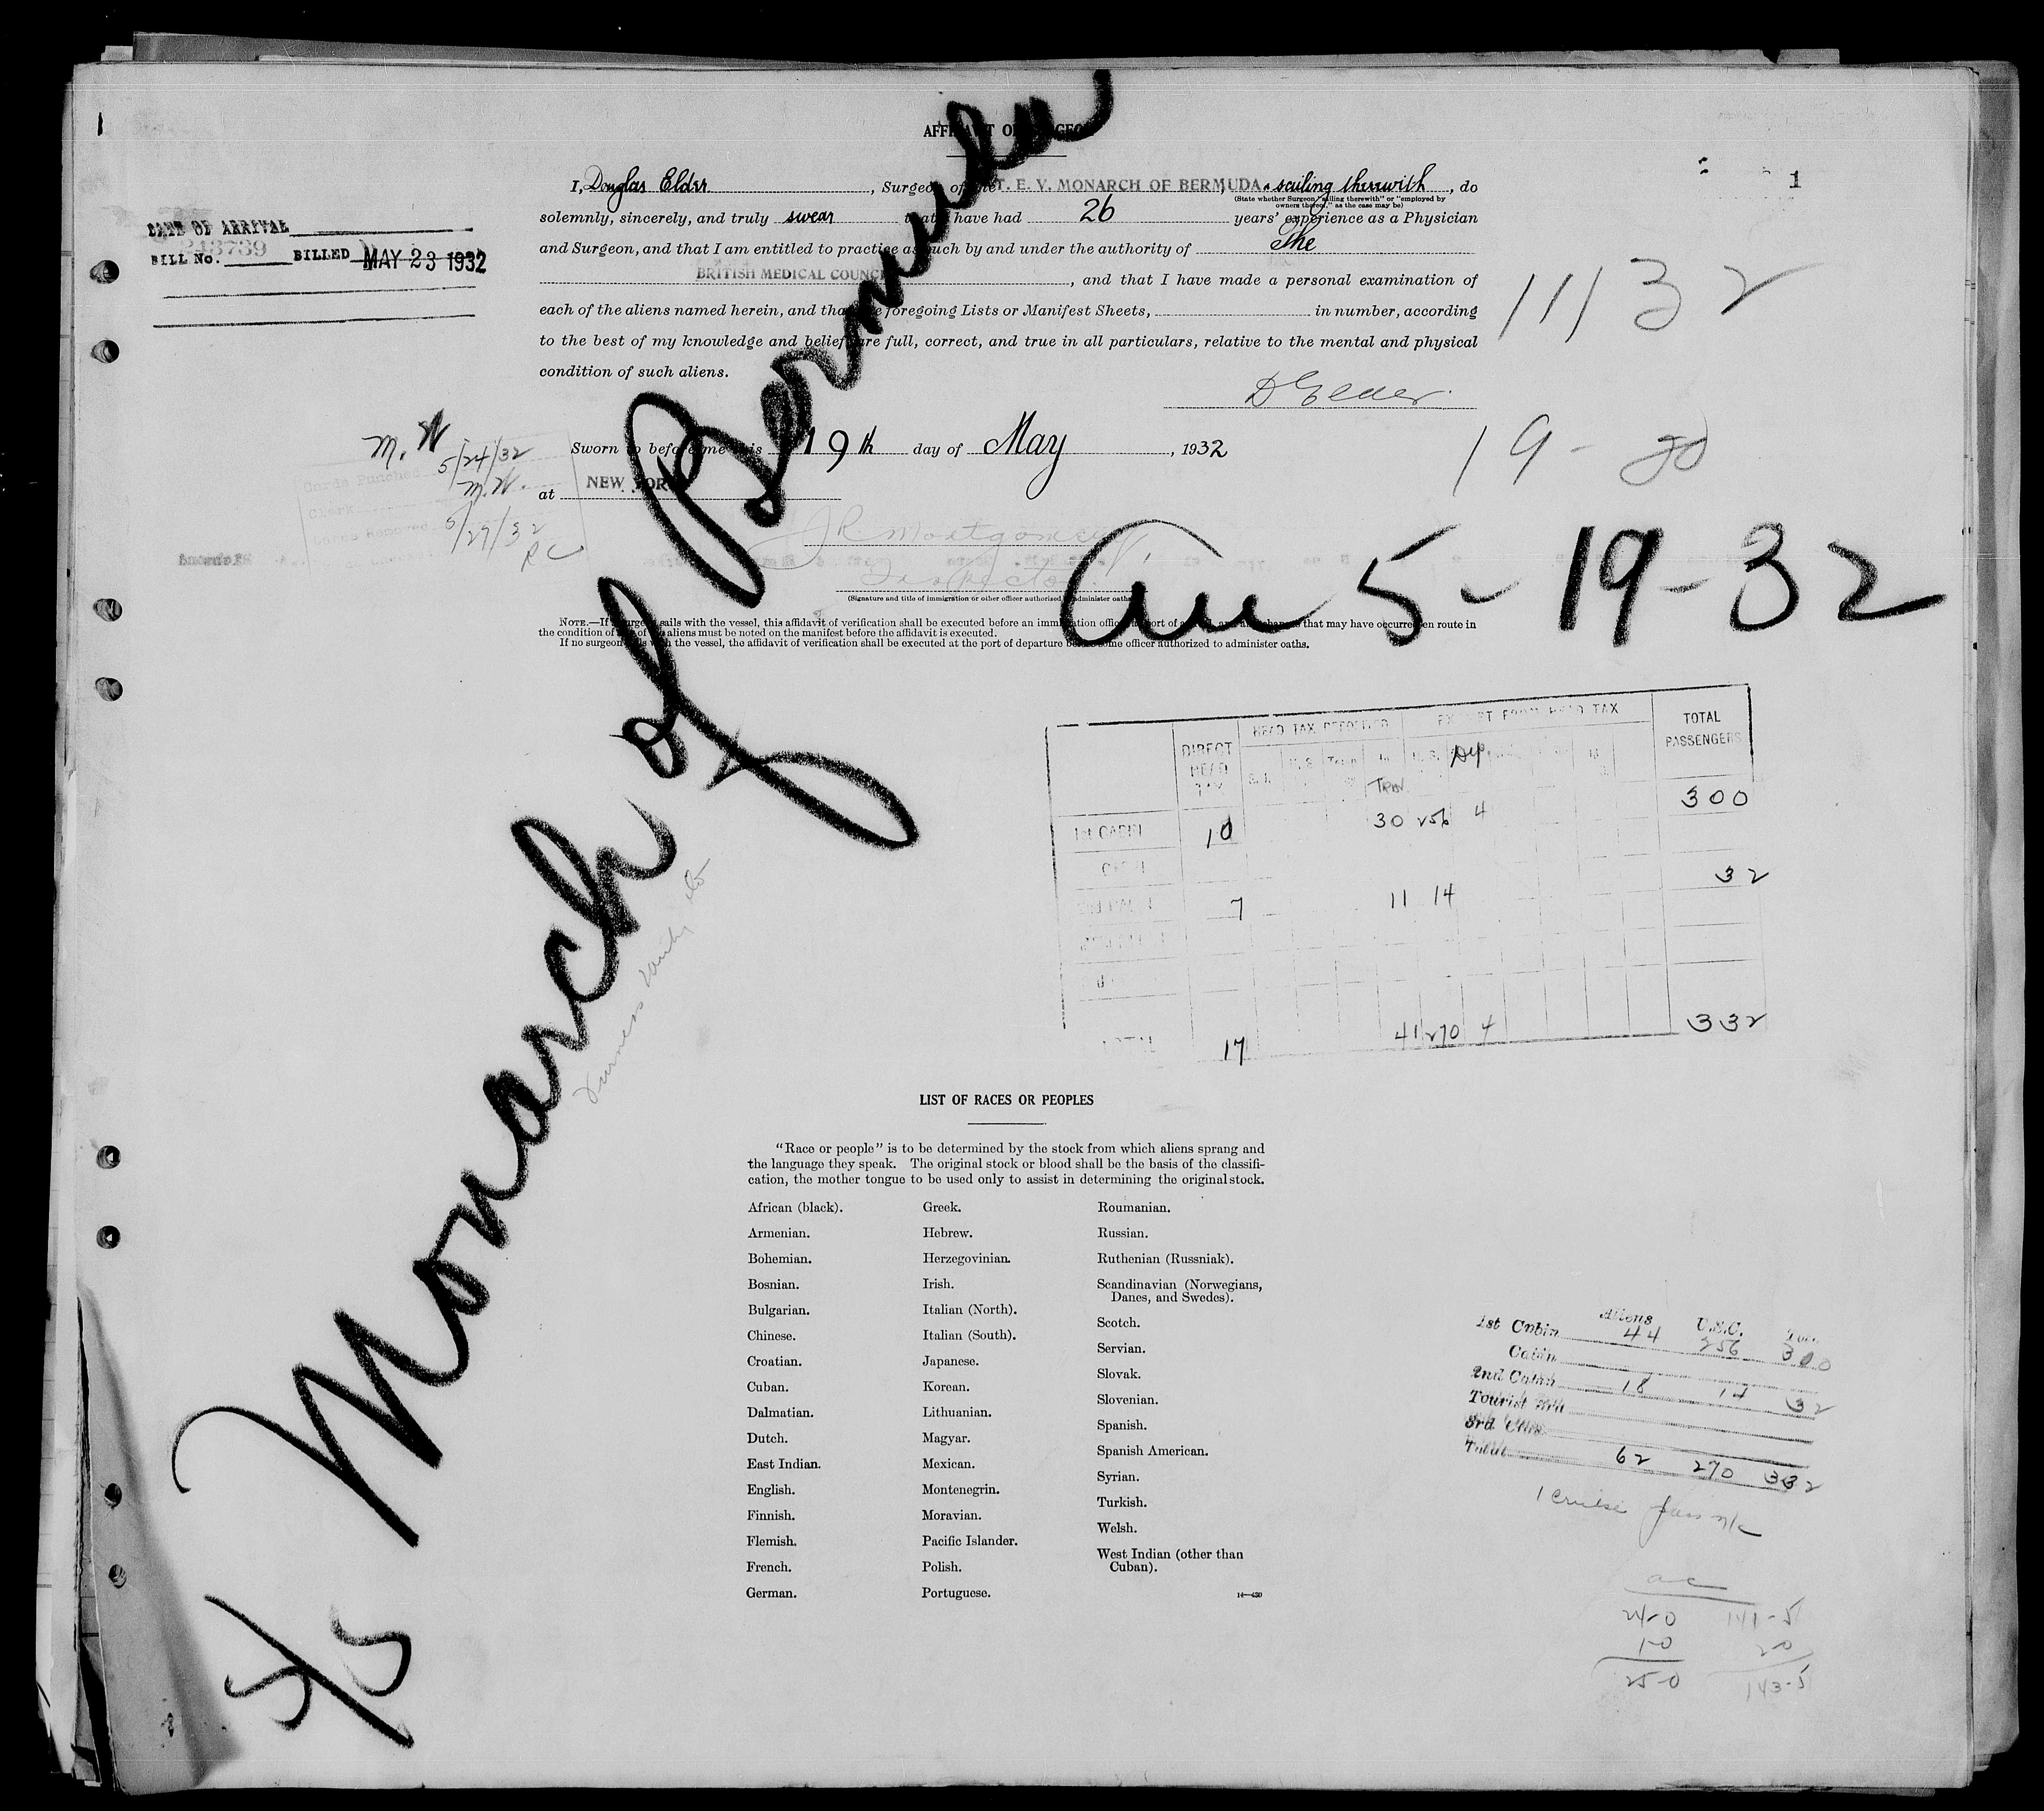 AFFIDAVIT OF SURGEON
1
I, Douglas Elder, Surgeon of the T. E. V. MONARCH OF BERMUDA sailing therewith, do
(State whether Surgeon "sailing therewith" or "employed by
owners thereof," as the case may be)
solemnly, sincerely, and truly swear that I have had 26 years' experience as a Physician
and Surgeon, and that I am entitled to practice as such by and under the authority of The
BRITISH MEDICAL COUNCIL, and that I have made a personal examination of
each of the aliens named herein, and that the foregoing Lists or Manifest Sheets, in number, according
to the best of my knowledge and belief, are full, correct, and true in all particulars, relative to the mental and physical
condition of such aliens.
D Elder.
Sworn to before me this 19th day of May, 1932
at NEW YORK
J R Montgomery
Inspector
(Signature and title of immigration or other officer authorized to administer oaths)
NOTE.—If surgeon sails with the vessel, this affidavit of verification shall be executed before an immigration officer that may have occurred en route in
the condition of any of the aliens must be noted on the manifest before the affidavit is executed.
If no surgeon sails with the vessel, the affidavit of verification shall be executed at the port of departure before some officer authorized to administer oaths.
DATE OF ARRIVAL
BILL No. 243739 BILLED MAY 23 1932
M. W
5/24/32
M. W.
5/27/32
RC
Cards Punched
Clerk
11132
19-
S/S Monarch of Bermuda
Furness Withy
Arr 5-19-32
DIRECT HEAD TAX
HEAD TAX DEPOSITED
EXEMPT FROM HEAD TAX
TOTAL PASSENGERS
Trav
1st CABIN 10 30 256 4 300
2nd CABIN 7 11 14 32
TOTAL 17 41 270 4 332
LIST OF RACES OR PEOPLES
"Race or people" is to be determined by the stock from which aliens sprang and
the language they speak. The original stock or blood shall be the basis of the classifi-
cation, the mother tongue to be used only to assist in determining the original stock.
African (black).
Armenian.
Bohemian.
Bosnian.
Bulgarian.
Chinese.
Croatian.
Cuban.
Dalmatian.
Dutch.
East Indian.
English.
Finnish.
Flemish.
French.
German.
Greek.
Hebrew.
Herzegovinian.
Irish.
Italian (North).
Italian (South).
Japanese.
Korean.
Lithuanian.
Magyar.
Mexican.
Montenegrin.
Moravian.
Pacific Islander.
Polish.
Portuguese.
Roumanian.
Russian.
Ruthenian (Russniak).
Scandinavian (Norwegians,
Danes, and Swedes).
Scotch.
Servian.
Slovak.
Slovenian.
Spanish.
Spanish American.
Syrian.
Turkish.
Welsh.
West Indian (other than
Cuban).
Aliens U.S.C.
1st Cabin 44 256 300
Cabin
2nd Cabin 18 14 32
Tourist 3rd
3rd Class
Total 62 270 332
1 cruise pass
24-0 141-5
1-0 2-0
25-0 143-5